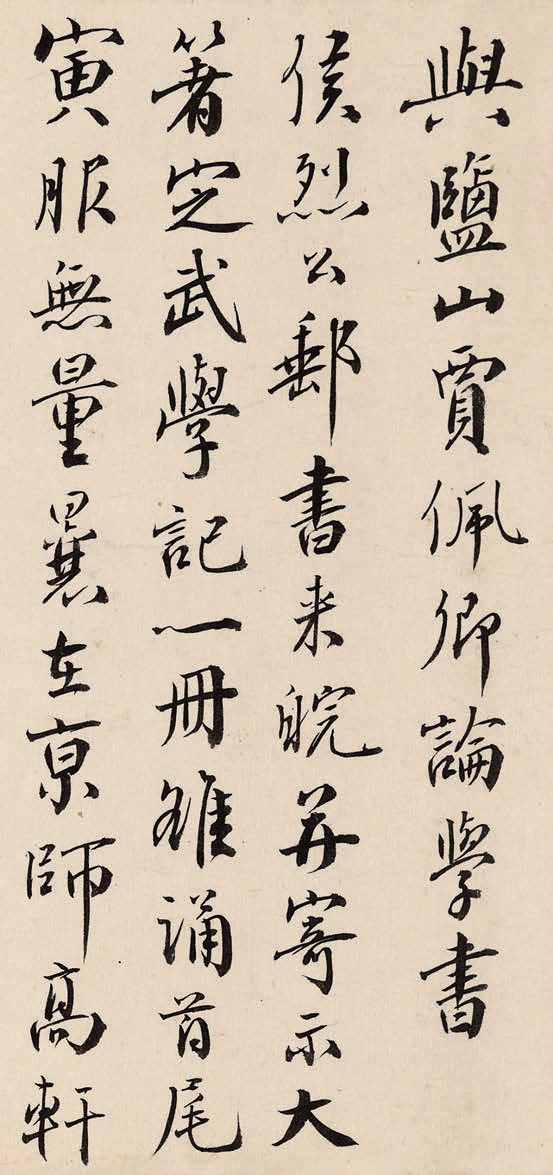 與鹽山賈佩卿論學書
侯烈公郵書来皖并寄示大
著定武學記一冊雒誦首尾
寅服無量曩在京師高軒